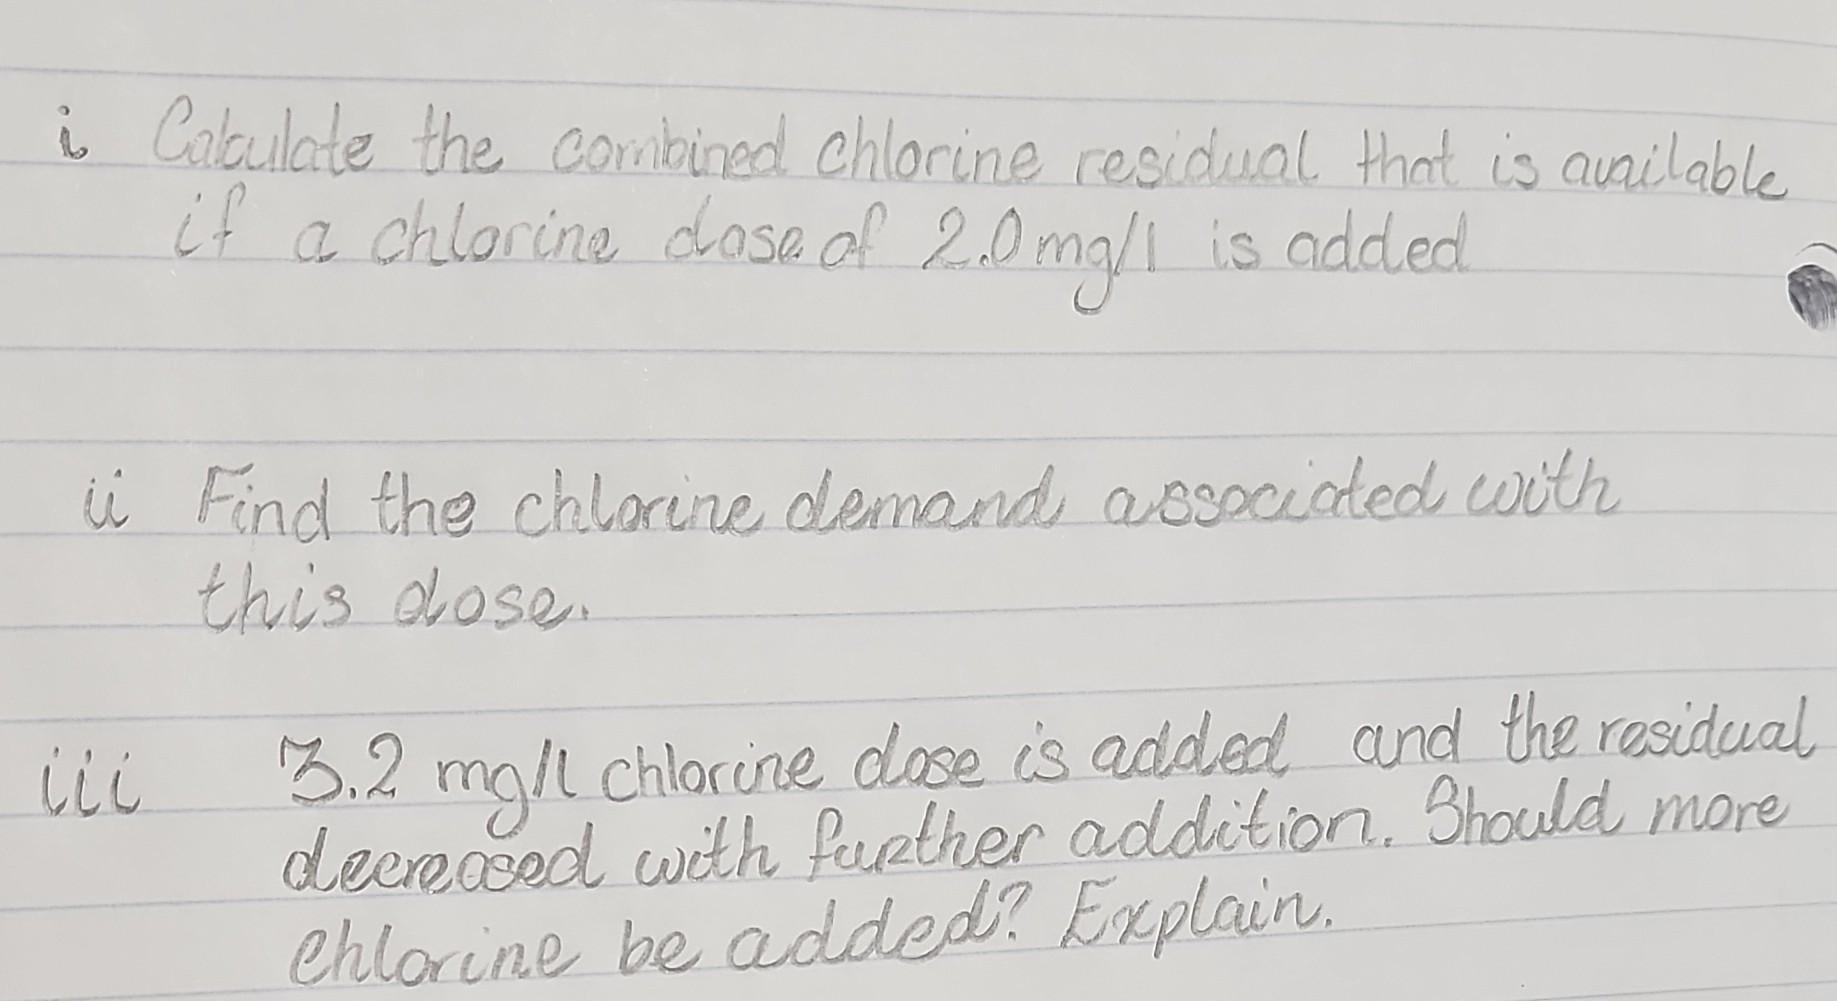 i Calculate the combined chlorine residual that is available
if a chlorine dose of 2.0 mg/l is added
ii Find the chlorine demand associated with
this dose.
iii 3.2 mg/l chlorine dose is added and the residual
decreased with further addition. Should more
chlorine be added? Explain.